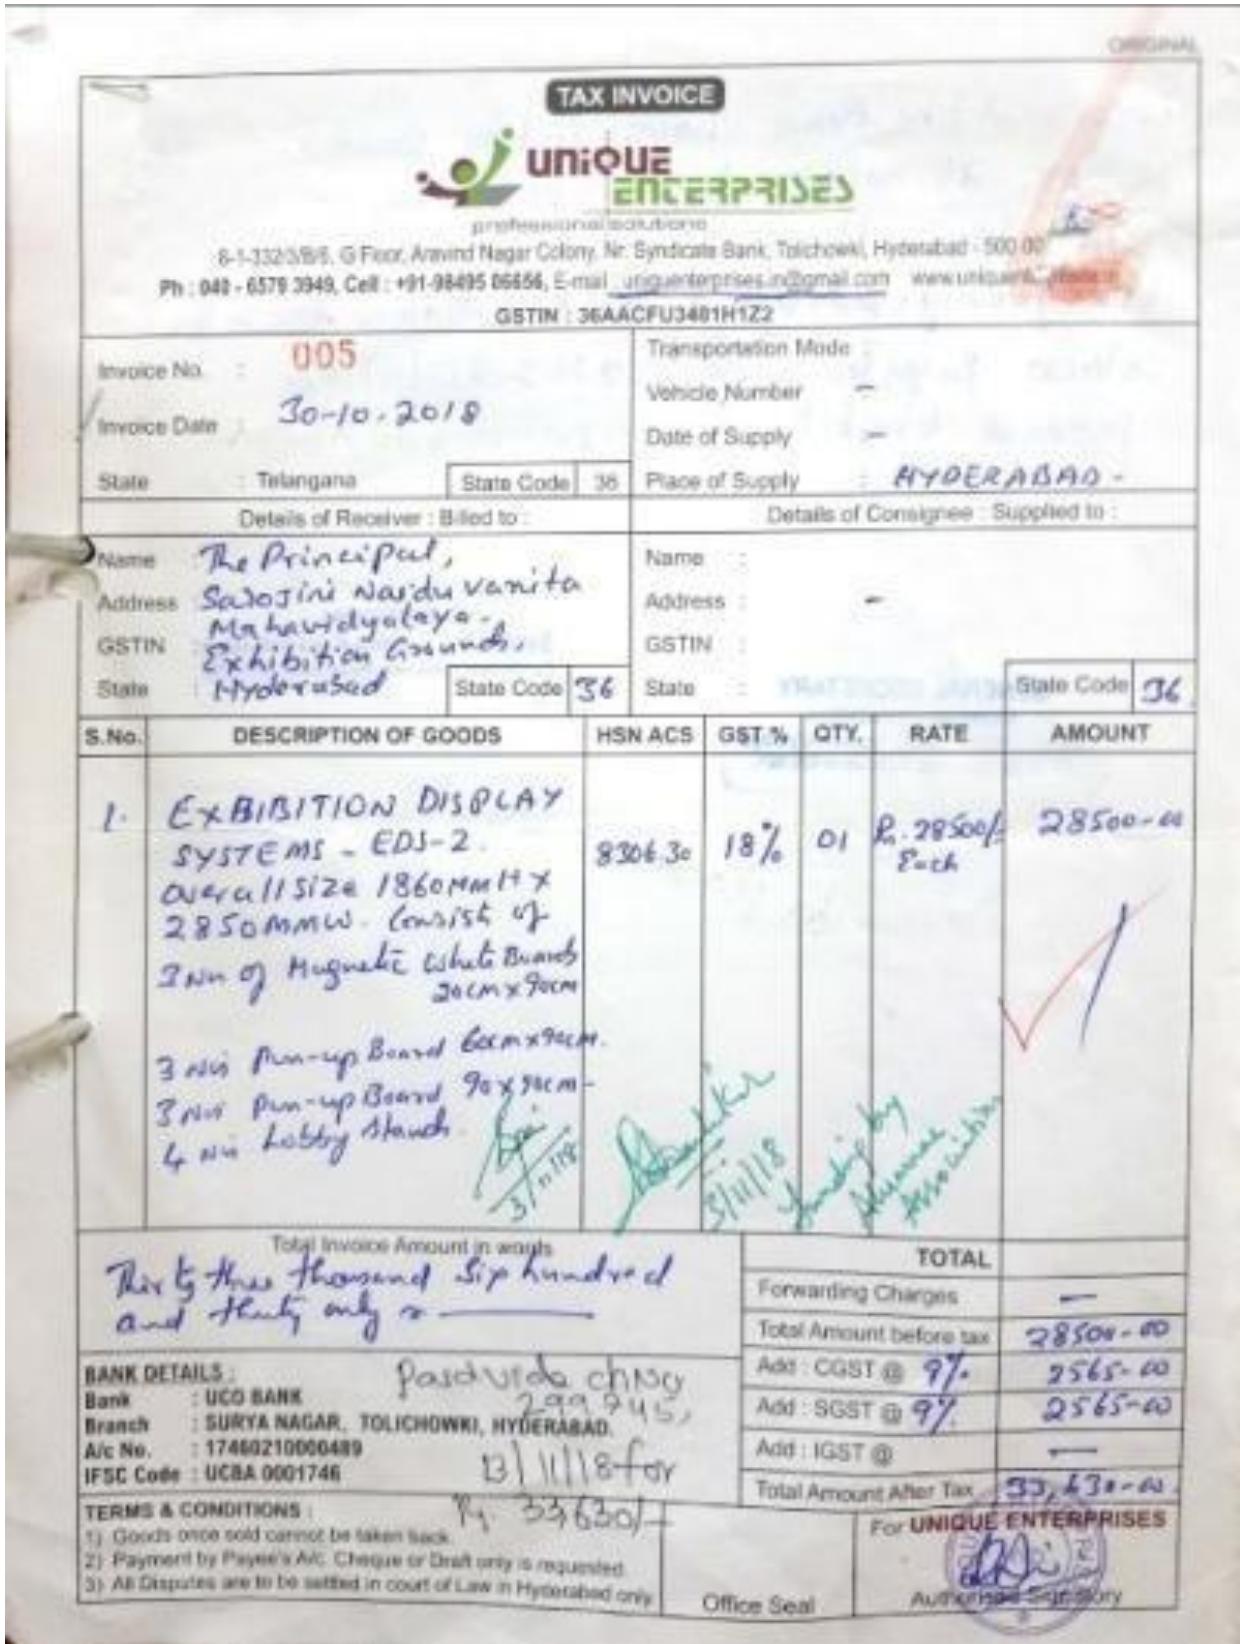 ORIGINAL
TAX INVOICE
UNiQUE
ENTERPRISES
professional solutions
G Floor, Aravind Nagar Colony, Nr. Syndicate Bank, Tolichowki, Hyderabad - 500 00
Ph : 040 - 6579 3949, Cell : +91-98495 06656, E-mail uniquenterprises.in@gmail.com
GSTIN : 36AACFU3481H1Z2
Invoice No. : 005
Invoice Date : 30-10-2018
State : Telangana State Code 36
Transportation Mode
Vehicle Number –
Date of Supply –
Place of Supply : HYDERABAD -
Details of Receiver : Billed to :
Details of Consignee : Supplied to :
Name The Principal,
Address Sarojini Naidu Vanita
Mahavidyalaya -
GSTIN Exhibition Grounds,
State : Hyderabad State Code 36
Name :
Address : –
GSTIN :
State : State Code 36
S.No. DESCRIPTION OF GOODS HSN ACS GST % QTY. RATE AMOUNT
1. EXBIBITION DISPLAY
SYSTEMS - EDS-2. 8306.30 18% 01 Rs. 28500/- Each 28500-00
Overall Size 1860MMH X
2850MMW. Consist of
3 Nos of Magnetic White Boards
90cm
3 Nos Pun-up Board 60cm x 90cm.
3 Nos Pun-up Board 90 x 90cm -
4 Nos Lobby Stands.
3/11/18
5/11/18
by
Association
Total Invoice Amount in words
Thirty three thousand Six hundred
and thirty only
TOTAL
Forwarding Charges –
Total Amount before tax 28500-00
Add : CGST @ 9% 2565-00
Add : SGST @ 9% 2565-00
Add : IGST @ –
Total Amount After Tax 33,630-00
BANK DETAILS :
Bank : UCO BANK
Branch : SURYA NAGAR, TOLICHOWKI, HYDERABAD.
A/c No. : 17460210000489
IFSC Code : UCBA 0001746
Paid vide ch No
299745,
13/11/18 for
Rs. 33,630/-
TERMS & CONDITIONS :
1) Goods once sold cannot be taken back.
2) Payment by Payee's A/c. Cheque or Draft only is requested.
3) All Disputes are to be settled in court of Law in Hyderabad only.
Office Seal
For UNIQUE ENTERPRISES
Authorised Signatory